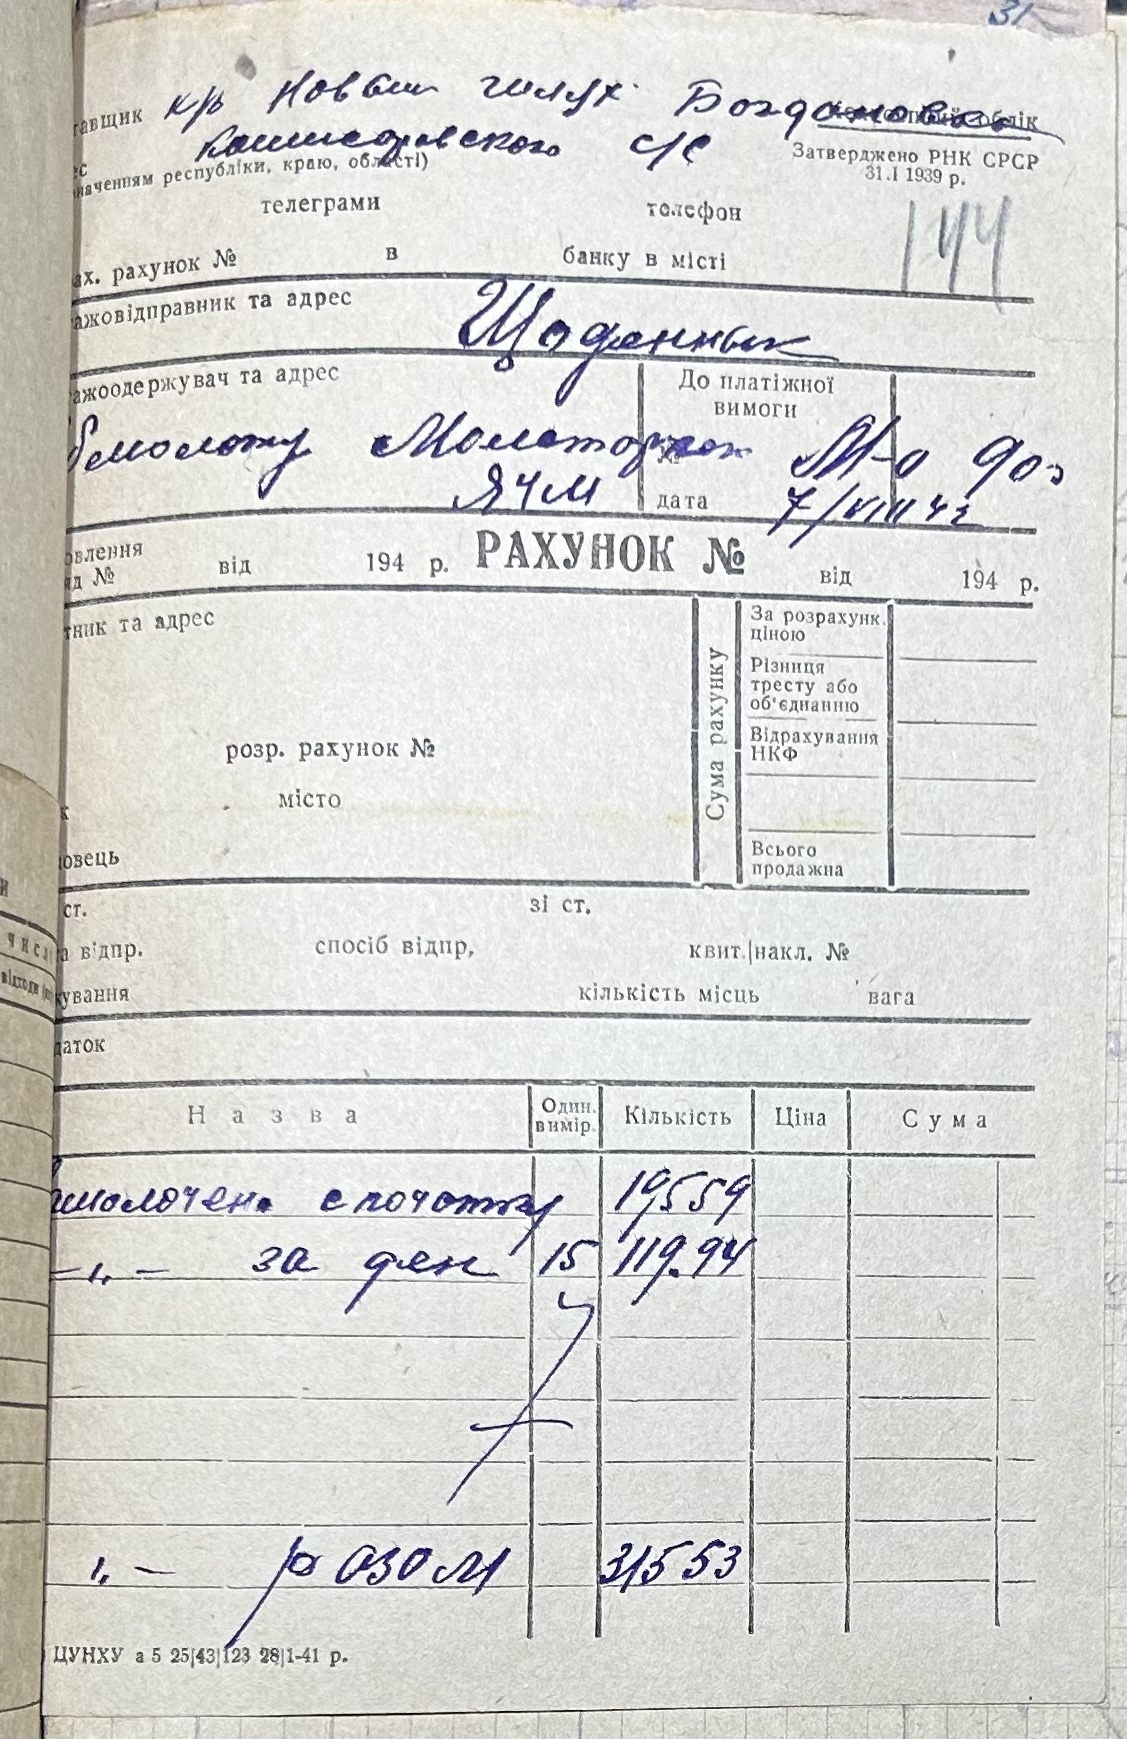 31
к/г Новыи шлях Богдановка
тавщик
облік
с/с
Затверджено РНК СРСР
31.I 1939 р.
значенням республіки, краю, області)
телеграми телефон
144
ах. рахунок № в банку в місті
ажовідправник та адрес
Щоденнык
ажоодержувач та адрес До платіжної
вимоги
М-о
ячм дата 7/VIII 42
овлення
яд № від 194 р. РАХУНОК № від 194 р.
тник та адрес
За розрахунк.
ціною
Різниця
тресту або
об'єднанню
Сума рахунку
Відрахування
НКФ
розр. рахунок №
місто
к
овець
Всього
продажна
ст. зі ст.
а відпр. спосіб відпр, квит.|накл. №
кування кількість місць вага
даток
Назва Один.
вимір. Кількість Ціна Сума
молочено с початку 19559
-„- за ден 15 119.94
„- разом 31553
ЦУНХУ а 5 25|43|123 28|1-41 р.